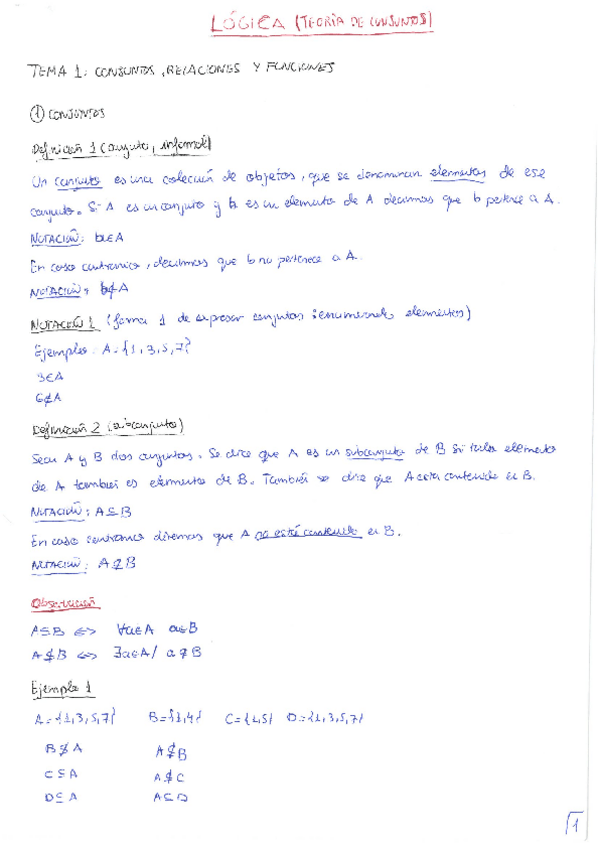 LÓGICA (TEORÍA DE CONJUNTOS)
TEMA 1: CONJUNTOS, RELACIONES Y FUNCIONES
① CONJUNTOS
Definición 1 (conjunto, informal)
Un conjunto es una colección de objetos, que se denominan elementos de ese
conjunto. Si A es un conjunto y b es un elemento de A decimos que b pertenece a A.
NOTACIÓN: b∈A
En caso contrario, decimos que b no pertenece a A.
NOTACIÓN: b∉A
NOTACIÓN 1 (forma 1 de expresar conjuntos: enumerando elementos)
Ejemplo: A={1,3,5,7}
3∈A
6∉A
Definición 2 (subconjunto)
Sean A y B dos conjuntos. Se dice que A es un subconjunto de B si todo elemento
de A también es elemento de B. También se dice que A está contenido en B.
NOTACIÓN: A⊆B
En caso contrario diremos que A no está contenido en B.
NOTACIÓN: A⊈B
Observación
A⊆B <=> ∀a∈A a∈B
A⊈B <=> ∃a∈A/ a∉B
Ejemplo 1
A={1,3,5,7} B={1,4} C={1,5} D={1,3,5,7}
B⊈A A⊈B
C⊆A A⊈C
D⊆A A⊆D
1